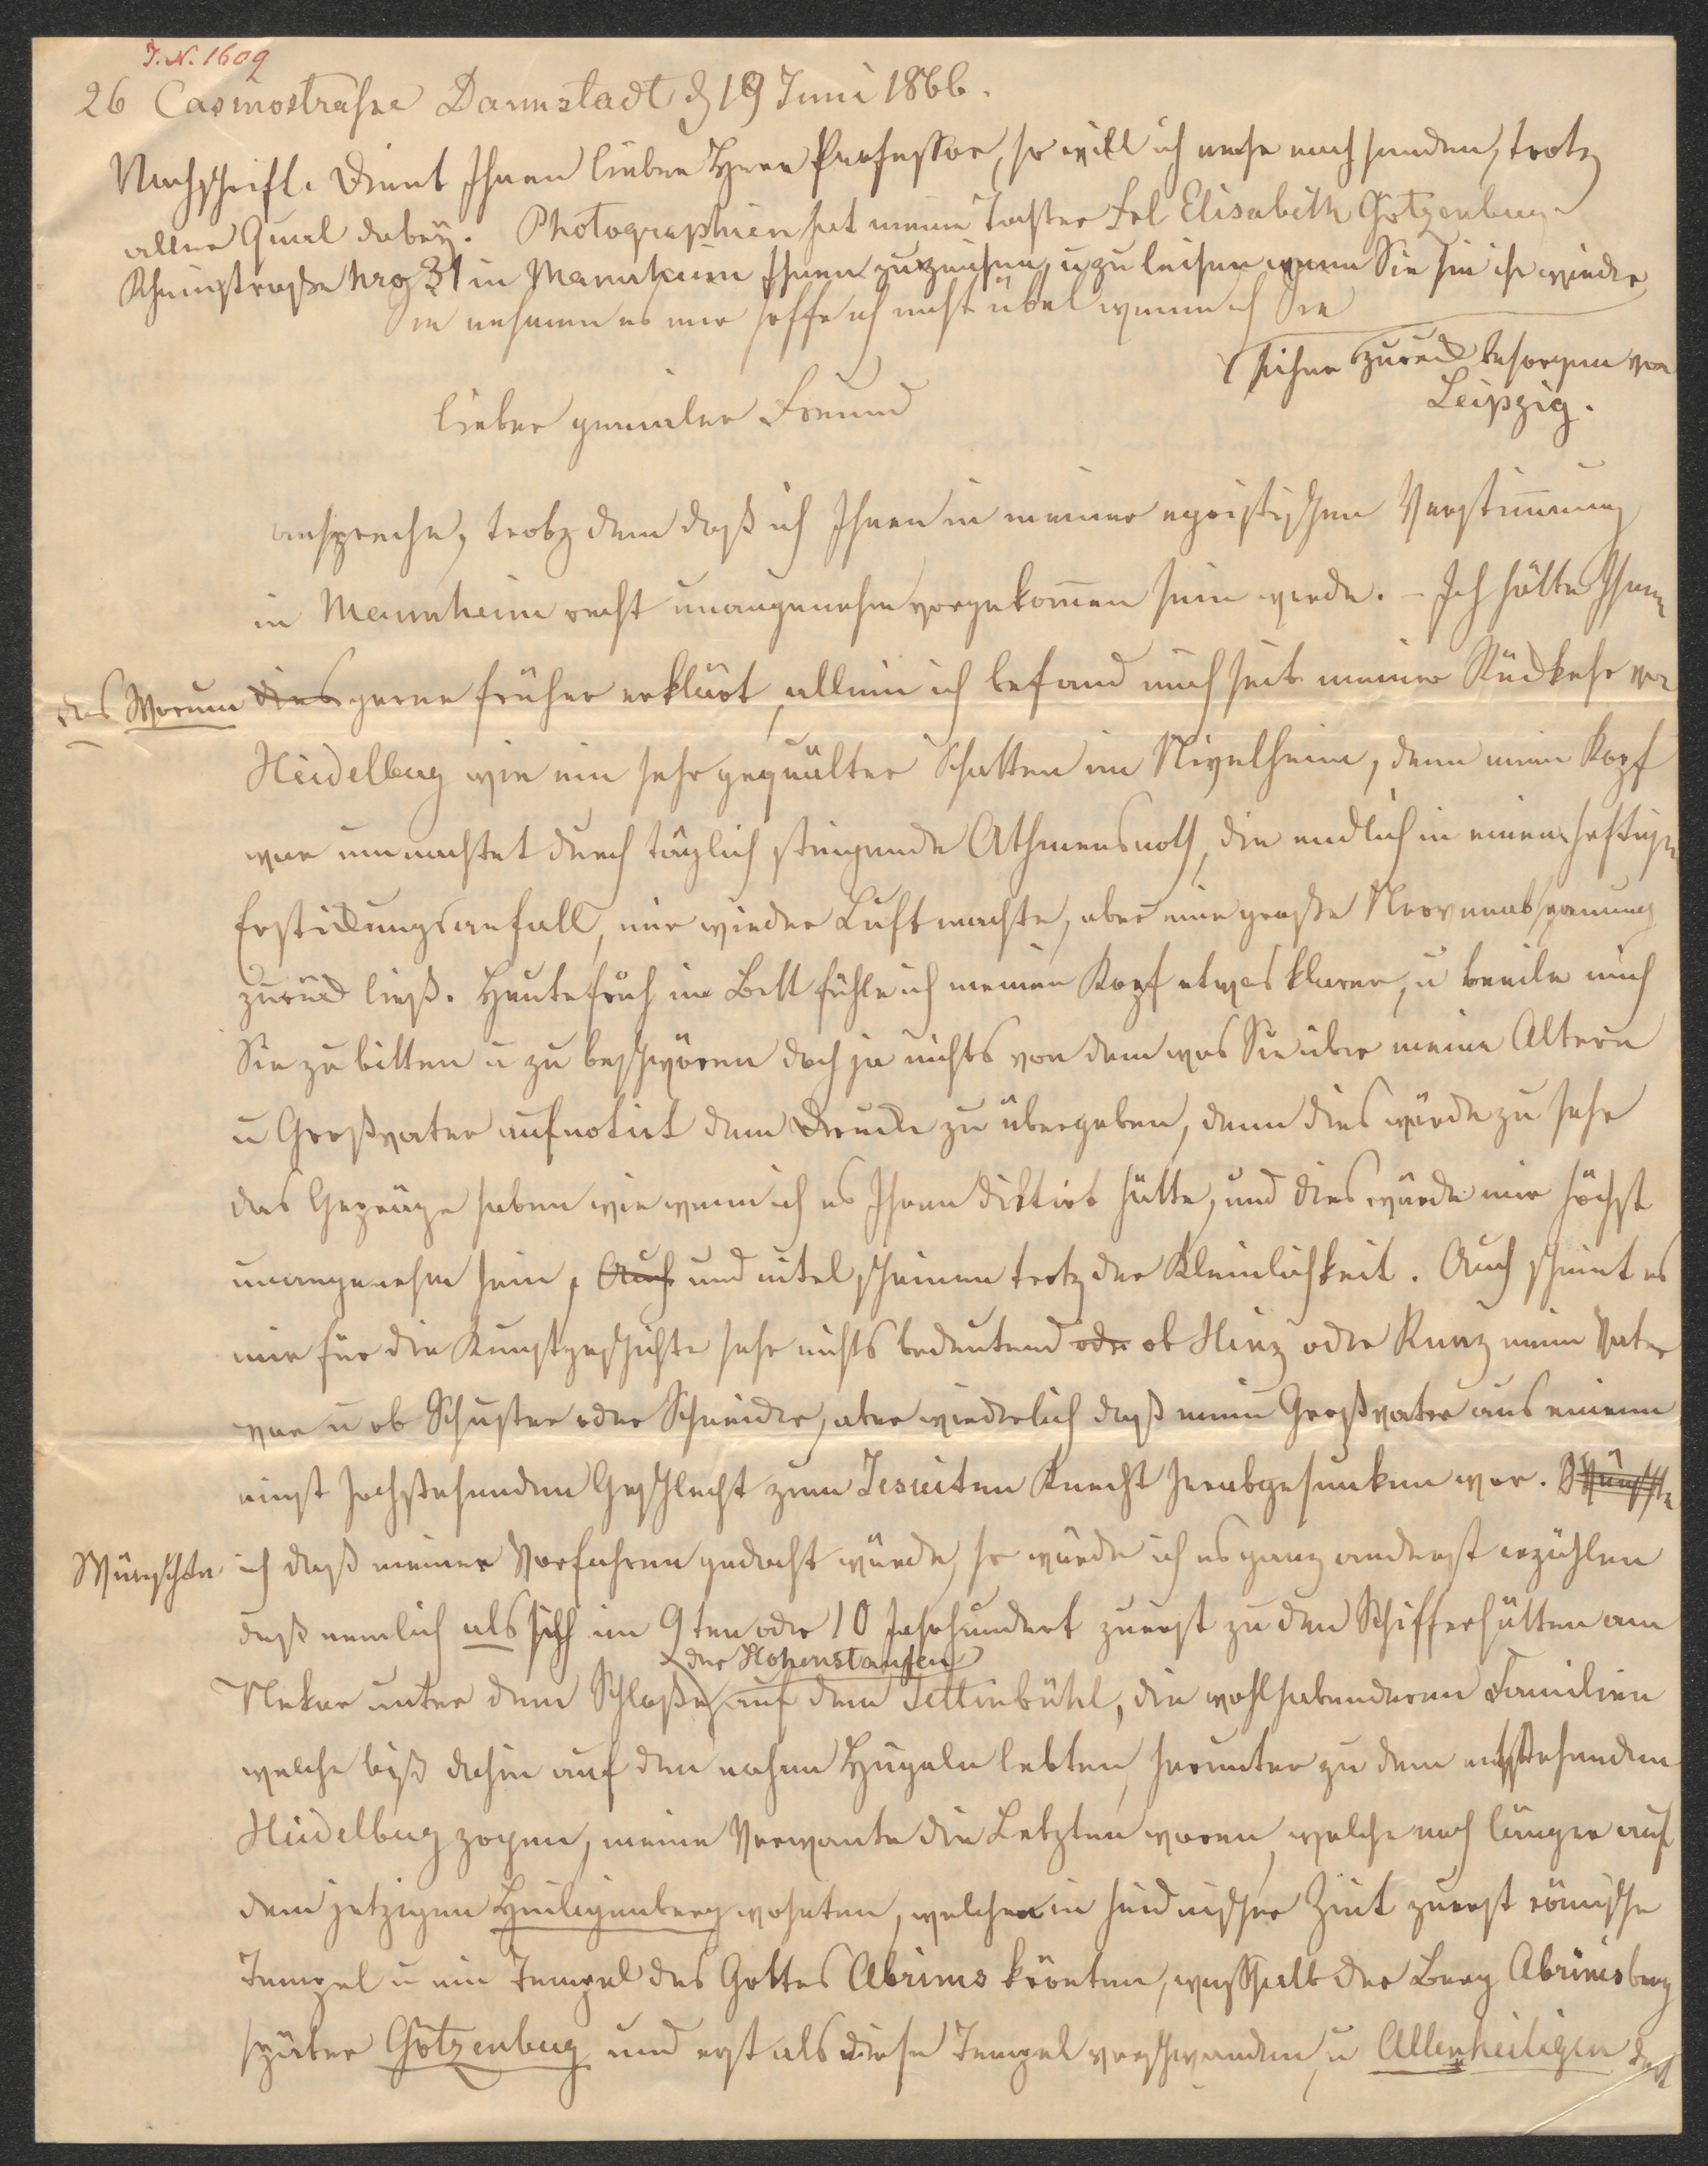 J. N. 1609
26 Casinostraße Darmstadt d 19 Juni 1866.
Nachschrift. Dient Ihnen lieber Herr Professor, so will ich mehr noch senden, trotz
aller Qual dabey. Photographien hat meine Tochter Frl Elisabeth Götzenberger
Rheinstraße Nro 31 in Mannheim Ihnen zu zeigen, u zu leihen wenn Sie sie ihr wieder
sicher zurück besorgen von
Leipzig.
Sie nehmen es mir hoffe ich nicht übel wenn ich Sie
lieber genialer Freund
anspreche, trotz dem daß ich Ihnen in meiner egoistischen Verstimmung
in Mannheim recht unangenehm vorgekommen sein werde. – Ich hätte Ihnen
das Warum dies gerne früher erklärt, allein ich befand mich seit meiner Rückkehr von
Heidelberg wie ein sehr gequälter Schatten im Nivelheim, denn mein Kopf
war umnachtet durch täglich steigende Athmensnoth, die endlich in einem heftigen
Erstickungsanfall, mir wieder Luft machte, aber eine große Nervenabspannung
zurück ließ. Heute früh im Bett fühle ich meinen Kopf etwas klarer, u beeile mich
Sie zu bitten u zu beschwören doch ja nichts von dem was Sie über meine Altern
u Großvater aufnotirt dem Drucke zu übergeben, denn dies würde zu sehr
das Gepräge haben wie wenn ich es Ihnen diktirt hätte, und dies würde mir höchst
unangenehm sein, Auch und eitel scheinen trotz der Kleinlichkeit. Auch scheint es
mir für die Kunstgeschichte sehr nichts bedeutend oder ob Hinz oder Kunz mein Vater
war u ob Schuster oder Schneider, aber wiederlich daß mein Großvater aus einem
einst hochstehenden Geschlecht zum Jesuiten Knecht herabgesunken war. Wünschte
Wünschte ich daß meiner Vorfahren gedacht würde, so würde ich es ganz anderst erzählen
daß nemlich als sich im 9ten oder 10 Jahrhundert zuerst zu den Schifferhütten am
der Hohenstaufen
Nekar unter dem Schloße auf dem Jettenbühl, die wohlhabenderen Familien
welche biß dahin auf den nahen Hügeln lebten, herunter zu dem entstehenden
Heidelberg zogen, meine Verwante die Letzten waren, welche noch länger auf
dem jetzigen Heiligenberg wohnten, welchen in heidnischer Zeit zuerst römische
Tempel u ein Tempel des Gottes Abrims krönten, weßhalb der Berg Abrimsberg
später Götzenberg und erst als diese Tempel verschwanden, u Allenheiligen dort